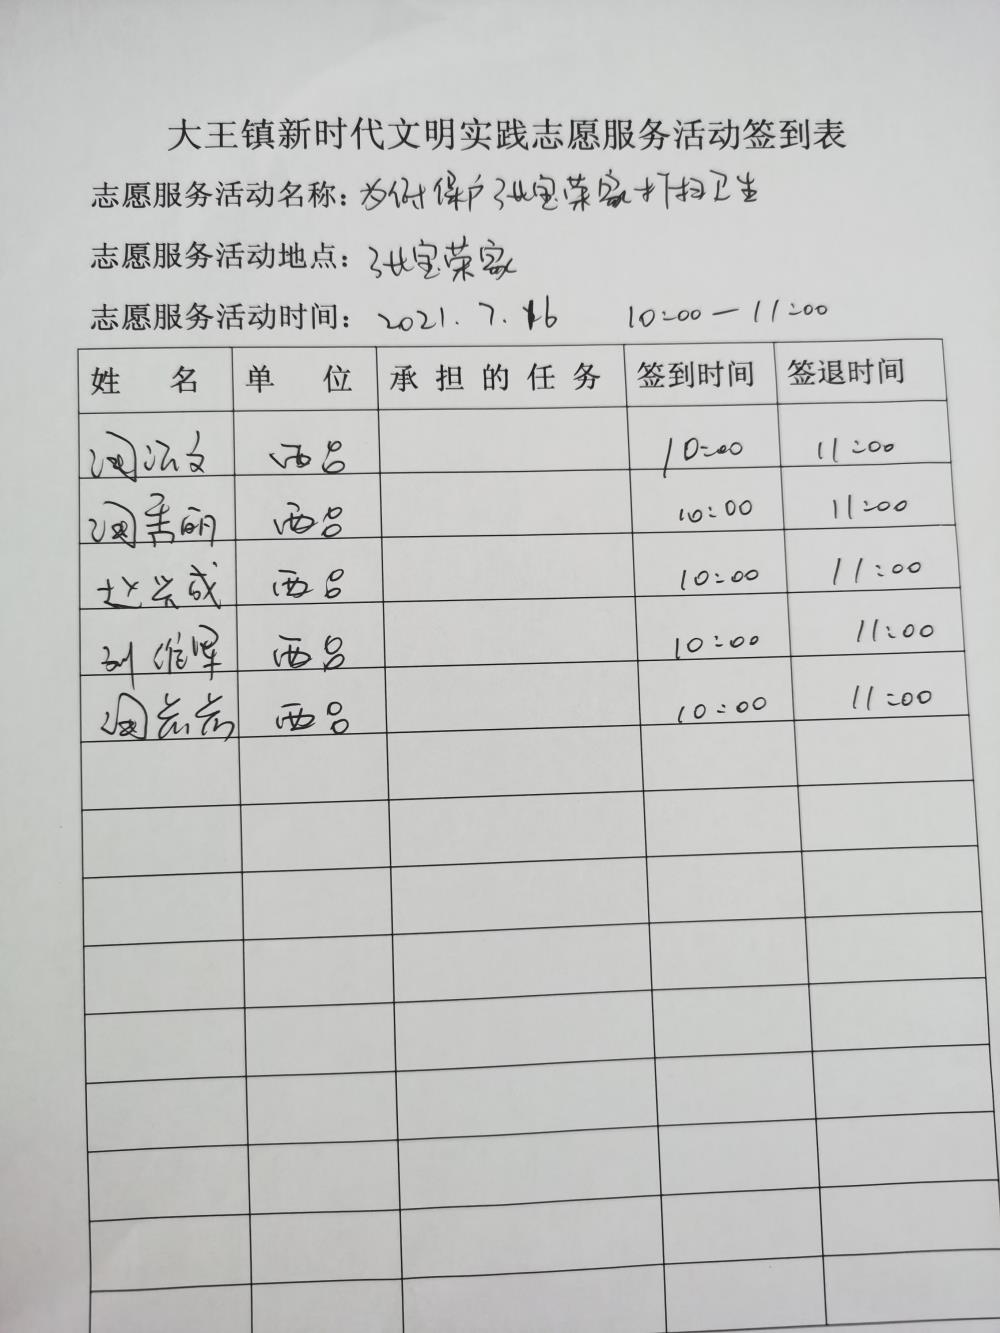 大王镇新时代文明实践志愿服务活动签到表
志愿服务活动名称：为低保户张宝荣家打扫卫生
志愿服务活动地点：张宝荣家
志愿服务活动时间：2021.7.16 10:00—11:00
姓 名 单 位 承担的任务 签到时间 签退时间
文 西吕 10:00 11:00
丽 西吕 10:00 11:00
赵兴成 西吕 10:00 11:00
刘维军 西吕 10:00 11:00
西吕 10:00 11:00